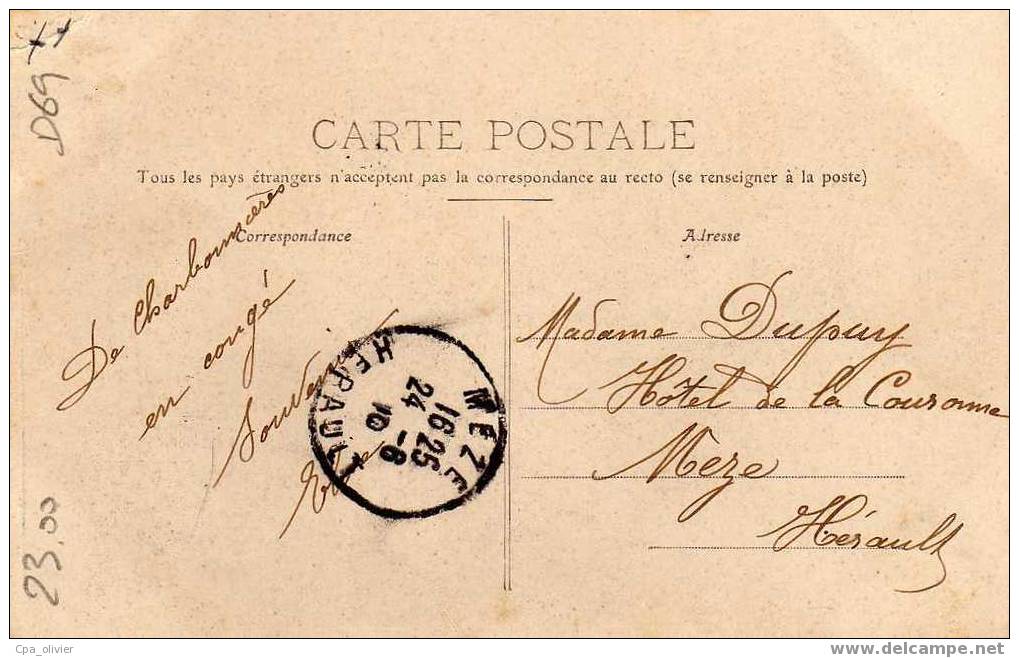 D69
CARTE POSTALE
Tous les pays étrangers n'acceptent pas la correspondance au recto (se renseigner à la poste)
Correspondance
Adresse
De Charbonnières
en congé
Souvenir
MEZE
16 25
24 -8
10
HERAULT
Madame Dupuy
Hôtel de la Couronne
Meze
Hérault
23,00
Cpa_olivier
www.delcampe.net